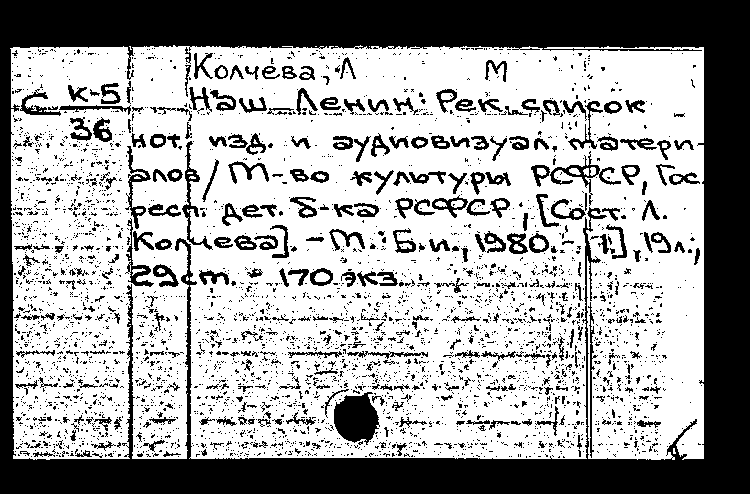 Колчева, Л М
С К-5 Наш Ленин: Рек. список
36 нот. изд. и аудиовизуал. матери-
алов / М-во культуры РСФСР, Гос.
респ. дет. б-ка РСФСР; [Сост. Л.
Колчева]. - М.: Б.и., 1980. - [1], 19 л.;
29 см. - 170 экз.